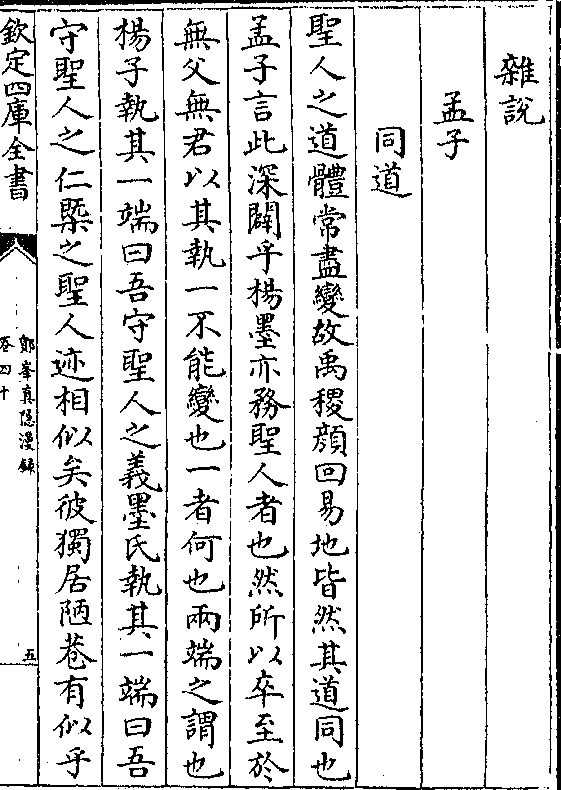 雜說
孟子
同道
聖人之道體常盡變故禹稷顔回易地皆然其道同也
孟子言此深闢乎楊墨亦務聖人者也然所以卒至於
無父無君以其執一不能變也一者何也兩端之謂也
楊子執其一端曰吾守聖人之義墨氏執其一端曰吾
守聖人之仁槩之聖人迹相似矣彼獨居陋巷有似乎
欽定四庫全書
鄮峯真隱漫錄
卷四十
五